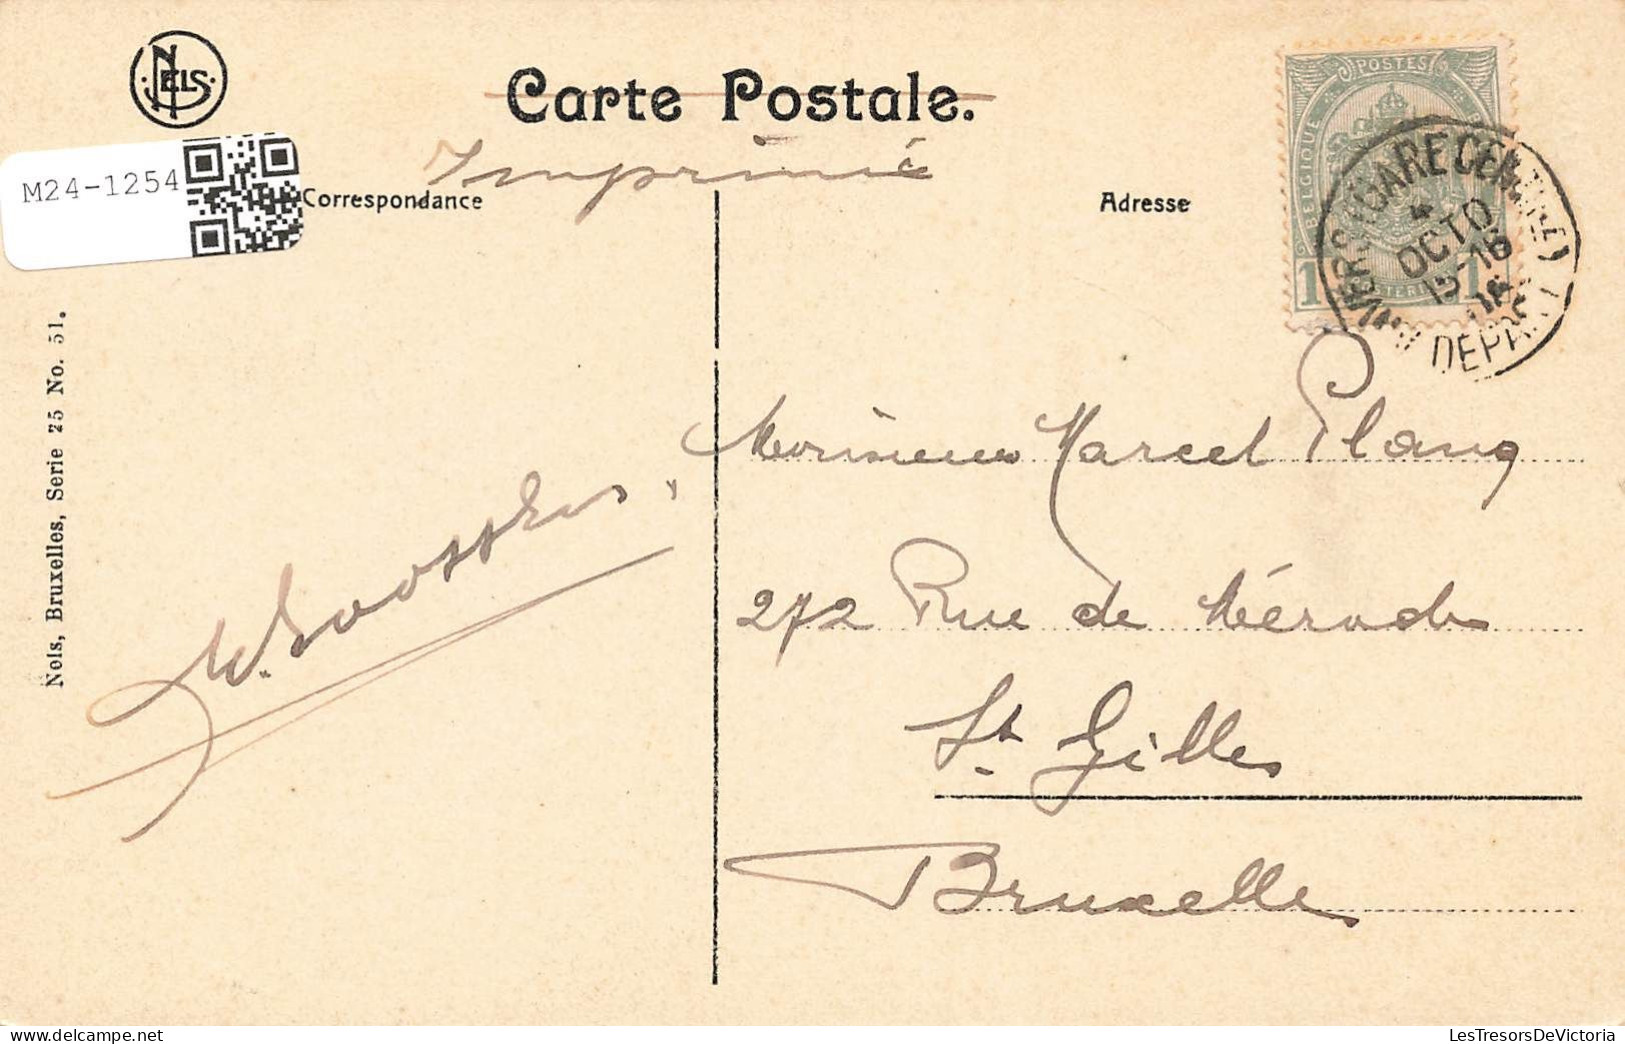 NELS
Carte Postale.
Imprimé
M24-1254
Correspondance
Adresse
POSTES
BELGIQUE
1 1
(GARE CENTRALE)
4
OCTO
15-16
DEPART
Nels, Bruxelles, Serie 25 No. 51.
Monsieur Marcel Plancq
272 Rue de Mérode
St Gilles
Bruxelles
LesTresorsDeVictoria
LesTresorsDeVictoria.com